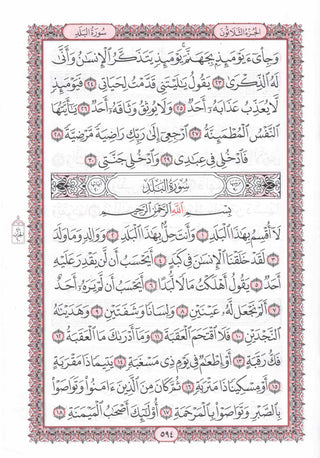 الجزء الثلاثون
سورة البلد
وَجِا۟ىٓءَ يَوْمَئِذٍۭ بِجَهَنَّمَ ۚ يَوْمَئِذٍ يَتَذَكَّرُ ٱلْإِنسَٰنُ وَأَنَّىٰ
لَهُ ٱلذِّكْرَىٰ ٢٣ يَقُولُ يَٰلَيْتَنِى قَدَّمْتُ لِحَيَاتِى ٢٤ فَيَوْمَئِذٍ
لَّا يُعَذِّبُ عَذَابَهُۥٓ أَحَدٌ ٢٥ وَلَا يُوثِقُ وَثَاقَهُۥٓ أَحَدٌ ٢٦ يَٰٓأَيَّتُهَا
ٱلنَّفْسُ ٱلْمُطْمَئِنَّةُ ٢٧ ٱرْجِعِىٓ إِلَىٰ رَبِّكِ رَاضِيَةً مَّرْضِيَّةً ٢٨
فَٱدْخُلِى فِى عِبَٰدِى ٢٩ وَٱدْخُلِى جَنَّتِى ٣٠
سُورَةُ البَلَدِ
بِسْمِ ٱللَّهِ ٱلرَّحْمَٰنِ ٱلرَّحِيمِ
لَآ أُقْسِمُ بِهَٰذَا ٱلْبَلَدِ ١ وَأَنتَ حِلٌّۢ بِهَٰذَا ٱلْبَلَدِ ٢ وَوَالِدٍ وَمَا وَلَدَ
٣ لَقَدْ خَلَقْنَا ٱلْإِنسَٰنَ فِى كَبَدٍ ٤ أَيَحْسَبُ أَن لَّن يَقْدِرَ عَلَيْهِ
أَحَدٌ ٥ يَقُولُ أَهْلَكْتُ مَالًا لُّبَدًا ٦ أَيَحْسَبُ أَن لَّمْ يَرَهُۥٓ أَحَدٌ
٧ أَلَمْ نَجْعَل لَّهُۥ عَيْنَيْنِ ٨ وَلِسَانًا وَشَفَتَيْنِ ٩ وَهَدَيْنَٰهُ
ٱلنَّجْدَيْنِ ١٠ فَلَا ٱقْتَحَمَ ٱلْعَقَبَةَ ١١ وَمَآ أَدْرَىٰكَ مَا ٱلْعَقَبَةُ ١٢
فَكُّ رَقَبَةٍ ١٣ أَوْ إِطْعَٰمٌ فِى يَوْمٍ ذِى مَسْغَبَةٍ ١٤ يَتِيمًا ذَا مَقْرَبَةٍ
١٥ أَوْ مِسْكِينًا ذَا مَتْرَبَةٍ ١٦ ثُمَّ كَانَ مِنَ ٱلَّذِينَ ءَامَنُوا۟ وَتَوَاصَوْا۟
بِٱلصَّبْرِ وَتَوَاصَوْا۟ بِٱلْمَرْحَمَةِ ١٧ أُو۟لَٰٓئِكَ أَصْحَٰبُ ٱلْمَيْمَنَةِ ١٨
٥٩٤